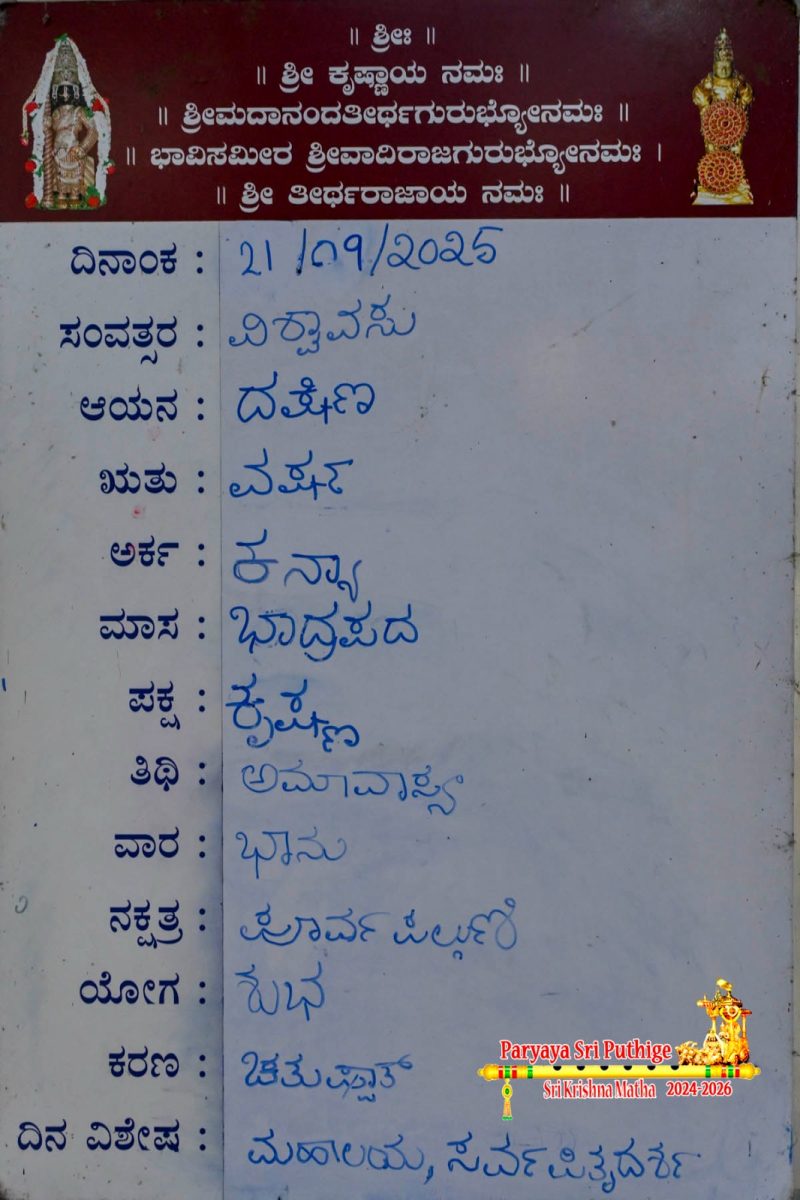 ॥ ಶ್ರೀಃ ॥
॥ ಶ್ರೀ ಕೃಷ್ಣಾಯ ನಮಃ ॥
॥ ಶ್ರೀಮದಾನಂದತೀರ್ಥಗುರುಭ್ಯೋನಮಃ ॥
॥ ಭಾವಿಸಮೀರ ಶ್ರೀವಾದಿರಾಜಗುರುಭ್ಯೋನಮಃ ।
॥ ಶ್ರೀ ತೀರ್ಥರಾಜಾಯ ನಮಃ ॥
ದಿನಾಂಕ : 21/09/2025
ಸಂವತ್ಸರ : ವಿಶ್ವಾವಸು
ಆಯನ : ದಕ್ಷಿಣ
ಋತು : ವರ್ಷ
ಅರ್ಕ : ಕನ್ಯಾ
ಮಾಸ : ಭಾದ್ರಪದ
ಪಕ್ಷ : ಕೃಷ್ಣ
ತಿಥಿ : ಅಮಾವಾಸ್ಯ
ವಾರ : ಭಾನು
ನಕ್ಷತ್ರ : ಪೂರ್ವ ಪಲ್ಗುಣಿ
ಯೋಗ : ಶುಭ
ಕರಣ : ಚತುಷ್ಪಾತ್
ದಿನ ವಿಶೇಷ : ಮಹಾಲಯ, ಸರ್ವಪಿತೃದರ್ಶ
Paryaya Sri Puthige
Sri Krishna Matha 2024-2026